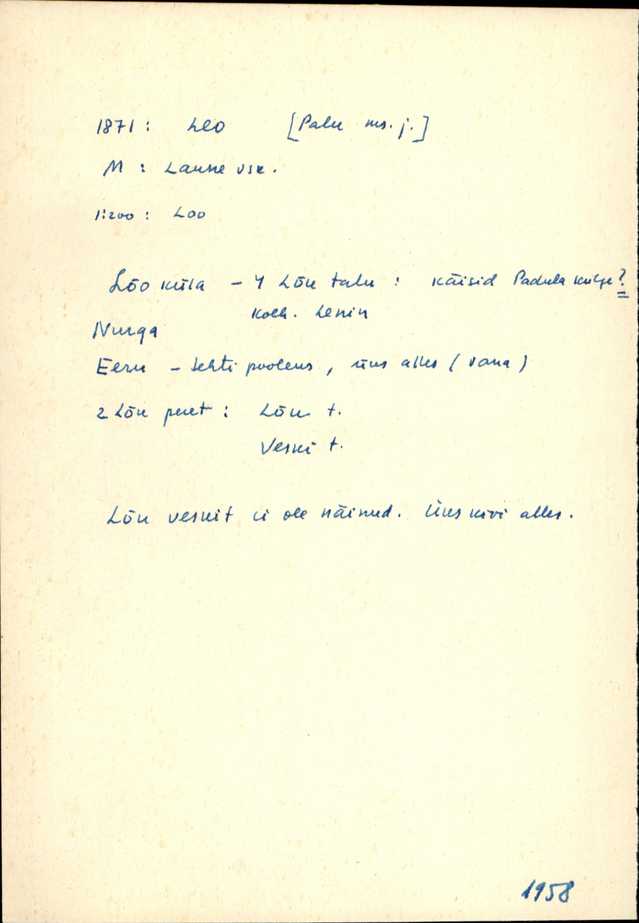 1871 : Leo [Palu ms. j.]
M : Laune vsk.
1:200 : Loo
Lõo küla – 4 Lõu talu : käisid Padula külje?
kolh. Lenin
Nurga
Eeru – tehti pooleks, üks alles (vana)
2 Lõu peret : Lõu t.
Veski t.
Lõu veskit ei ole näinud. Üks kivi alles.
1958